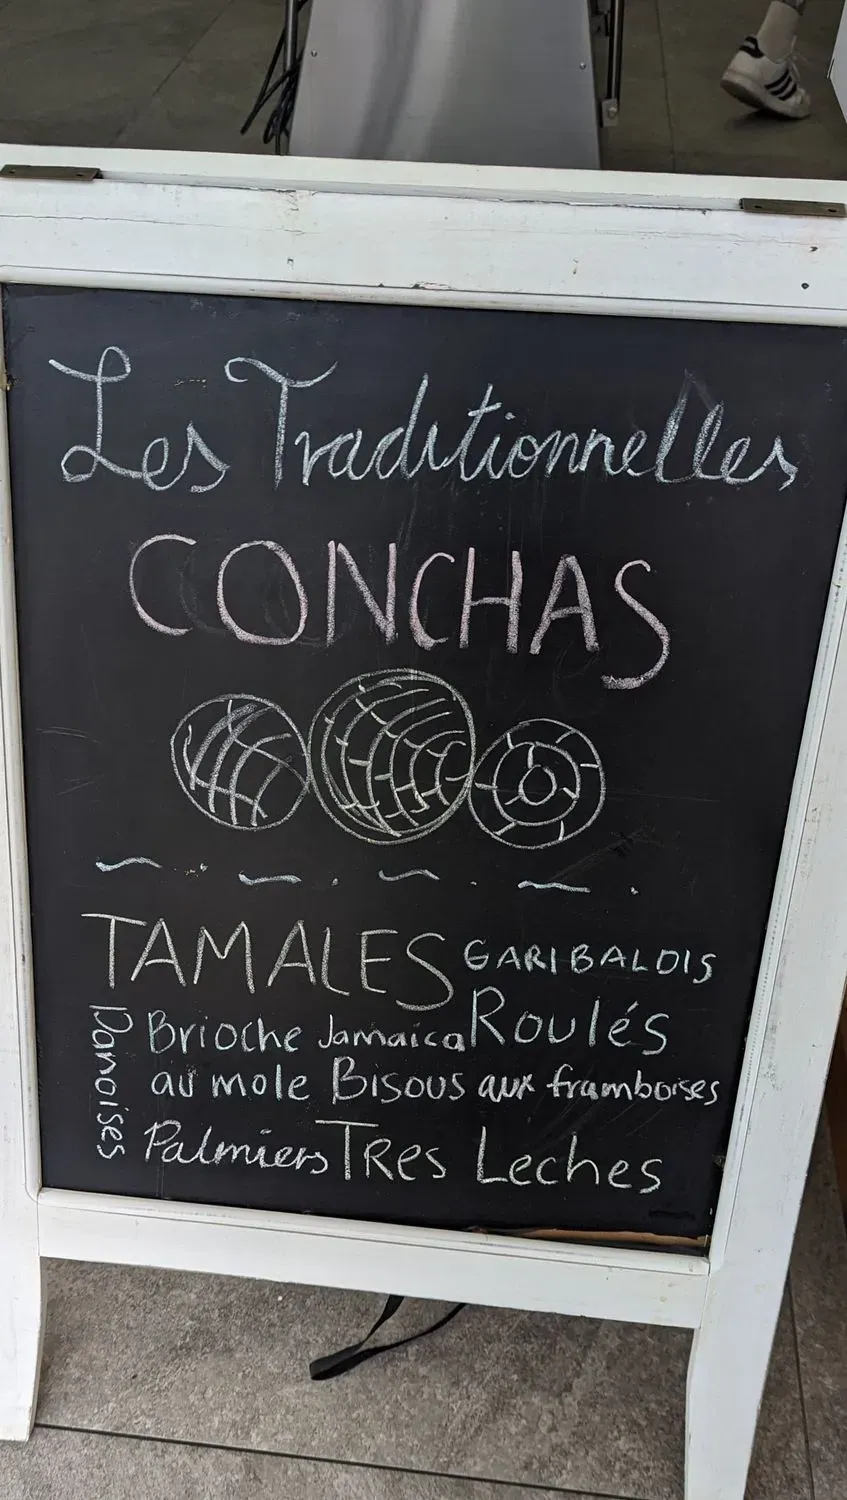 Les Traditionnelles
CONCHAS
TAMALES GARIBALDIS
Danoises
Brioche Jamaica Roulés
au mole Bisous aux framboises
Palmiers Tres Leches